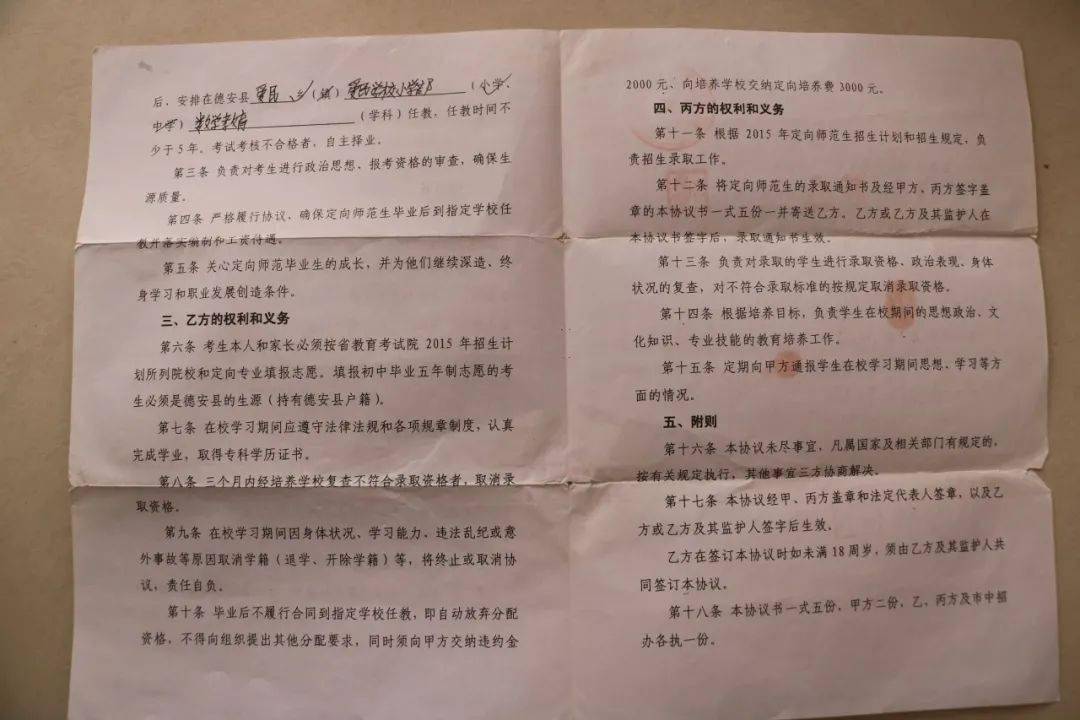 后，安排在德安县 爱民 乡（镇）爱民学校小学部（小学、
中学）数学教育（学科）任教，任教时间不
少于5年。考试考核不合格者，自主择业。
第三条 负责对考生进行政治思想、报考资格的审查，确保生
源质量。
第四条 严格履行协议，确保定向师范生毕业后到指定学校任
教并落实编制和工资待遇。
第五条 关心定向师范毕业生的成长，并为他们继续深造、终
身学习和职业发展创造条件。
三、乙方的权利和义务
第六条 考生本人和家长必须按省教育考试院 2015 年招生计
划所列院校和定向专业填报志愿。填报初中毕业五年制志愿的考
生必须是德安县的生源（持有德安县户籍）。
第七条 在校学习期间应遵守法律法规和各项规章制度，认真
完成学业，取得专科学历证书。
第八条 三个月内经培养学校复查不符合录取资格者，取消录
取资格。
第九条 在校学习期间因身体状况、学习能力、违法乱纪或意
外事故等原因取消学籍（退学、开除学籍）等，将终止或取消协
议，责任自负。
第十条 毕业后不履行合同到指定学校任教，即自动放弃分配
资格，不得向组织提出其他分配要求，同时须向甲方交纳违约金
2000 元、向培养学校交纳定向培养费 3000 元。
四、丙方的权利和义务
第十一条 根据 2015 年定向师范生招生计划和招生规定，负
责招生录取工作。
第十二条 将定向师范生的录取通知书及经甲方、丙方签字盖
章的本协议书一式五份一并寄送乙方。乙方或乙方及其监护人在
本协议书签字后，录取通知书生效。
第十三条 负责对录取的学生进行录取资格、政治表现、身体
状况的复查，对不符合录取标准的按规定取消录取资格。
第十四条 根据培养目标，负责学生在校期间的思想政治、文
化知识、专业技能的教育培养工作。
第十五条 定期向甲方通报学生在校学习期间思想、学习等方
面的情况。
五、附则
第十六条 本协议未尽事宜，凡属国家及相关部门有规定的，
按有关规定执行，其他事宜三方协商解决。
第十七条 本协议经甲、丙方盖章和法定代表人签章，以及乙
方或乙方及其监护人签字后生效。
乙方在签订本协议时如未满 18 周岁，须由乙方及其监护人共
同签订本协议。
第十八条 本协议书一式五份，甲方二份，乙、丙方及市中招
办各执一份。